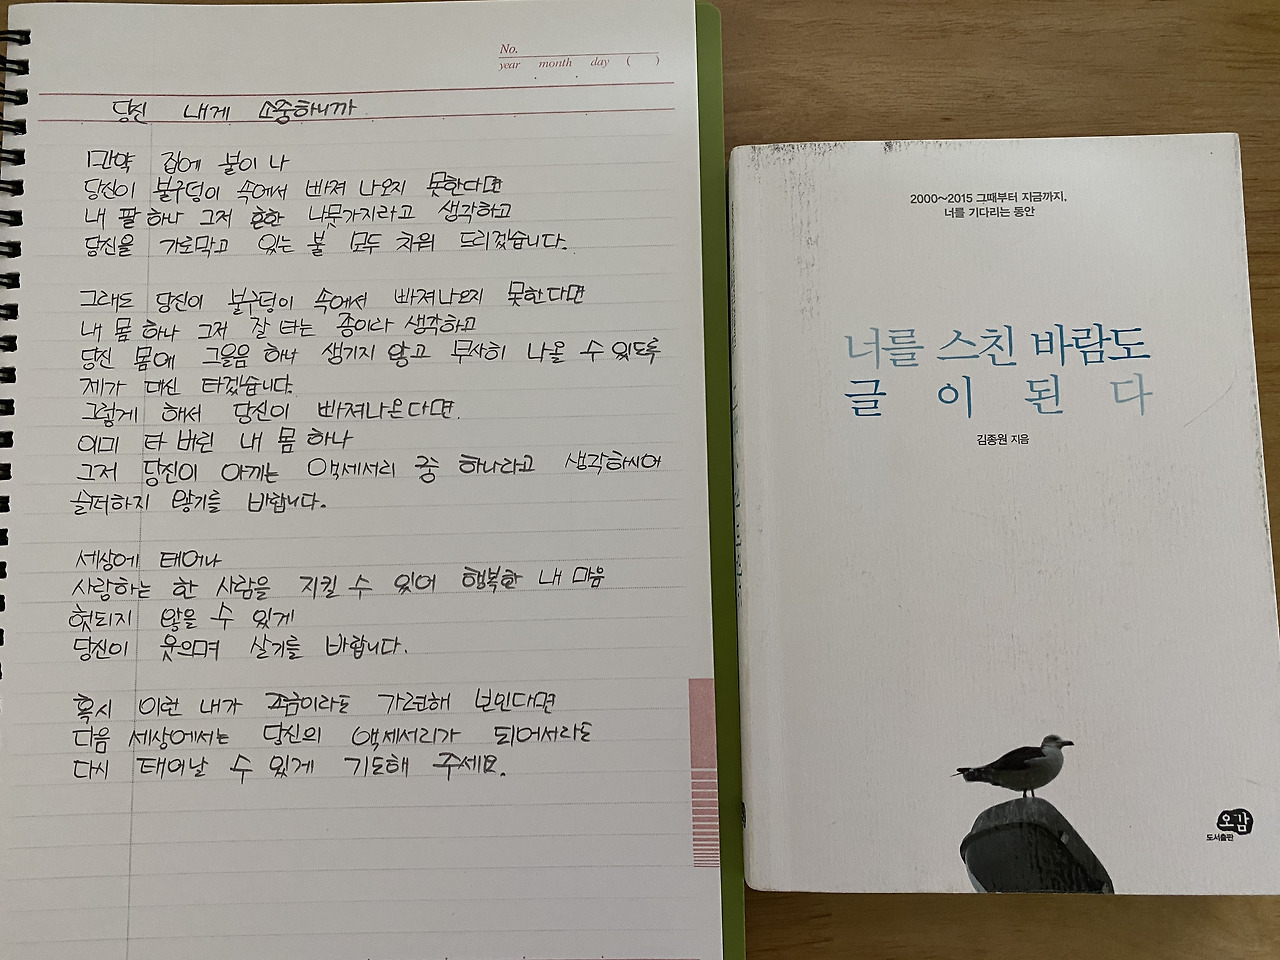 No.
year month day ( )
당신 내게 소중하니까
만약 집에 불이 나
당신이 불구덩이 속에서 빠져 나오지 못한다면
내 팔 하나 그저 흔한 나뭇가지라고 생각하고
당신을 가로막고 있는 불 모두 치워 드리겠습니다.
그래도 당신이 불구덩이 속에서 빠져나오지 못한다면
내 몸 하나 그저 잘 타는 종이라 생각하고
당신 몸에 그을음 하나 생기지 않고 무사히 나올 수 있도록
제가 대신 타겠습니다.
그렇게 해서 당신이 빠져나온다면
이미 타 버린 내 몸 하나
그저 당신이 아끼는 액세서리 중 하나라고 생각하시어
슬퍼하지 않기를 바랍니다.
세상에 태어나
사랑하는 한 사람을 지킬 수 있어 행복한 내 마음
헛되지 않을 수 있게
당신이 웃으며 살기를 바랍니다.
혹시 이런 내가 조금이라도 가련해 보인다면
다음 세상에서는 당신의 액세서리가 되어서라도
다시 태어날 수 있게 기도해 주세요.
2000~2015 그때부터 지금까지,
너를 기다리는 동안
너를 스친 바람도
글이 된다
김종원 지음
오감
도서출판